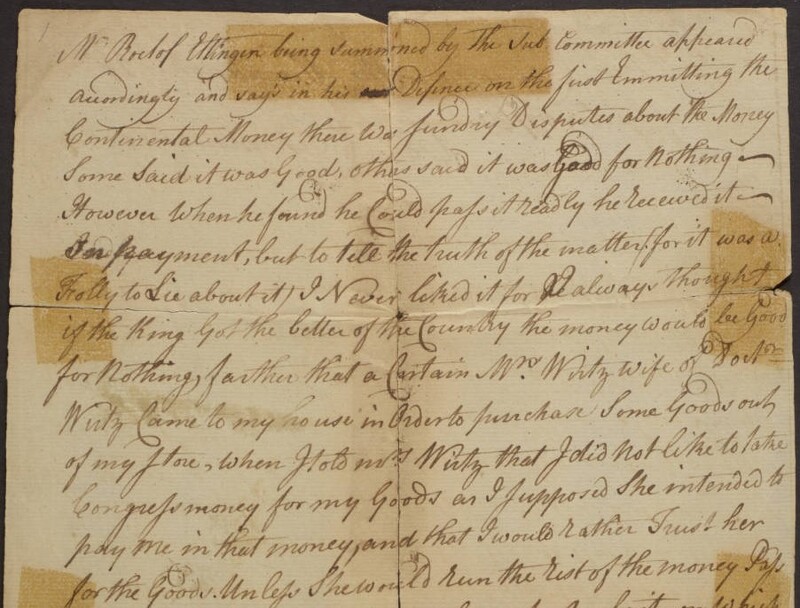 Mr Roelof Eltingen being summoned by the Sub Committee appeared
accordingly and say's in his Defince on the first Emmitting the
Continental Money there Was sundry Disputes about the Money
Some Said it was Good, others said it was Good for Nothing
However when he found he Could pass it readly he received it
In payment, but to tell the truth of the matter (for it was a
Folly to Lie about it) I Never liked it for I always thought
if the King Got the better of the Country the money would be Good
for Nothing, farther that a Certain Mrs Wirtz wife of Doctr
Wirtz Came to my house in Order to purchase Some Goods out
of my store, when I told mrs Wirtz that I did not like to take
Congress money for my Goods as I supposed She intended to
pay me in that money, and that I would rather Trust her
for the Goods. Unless She would run the rist of the money Pass